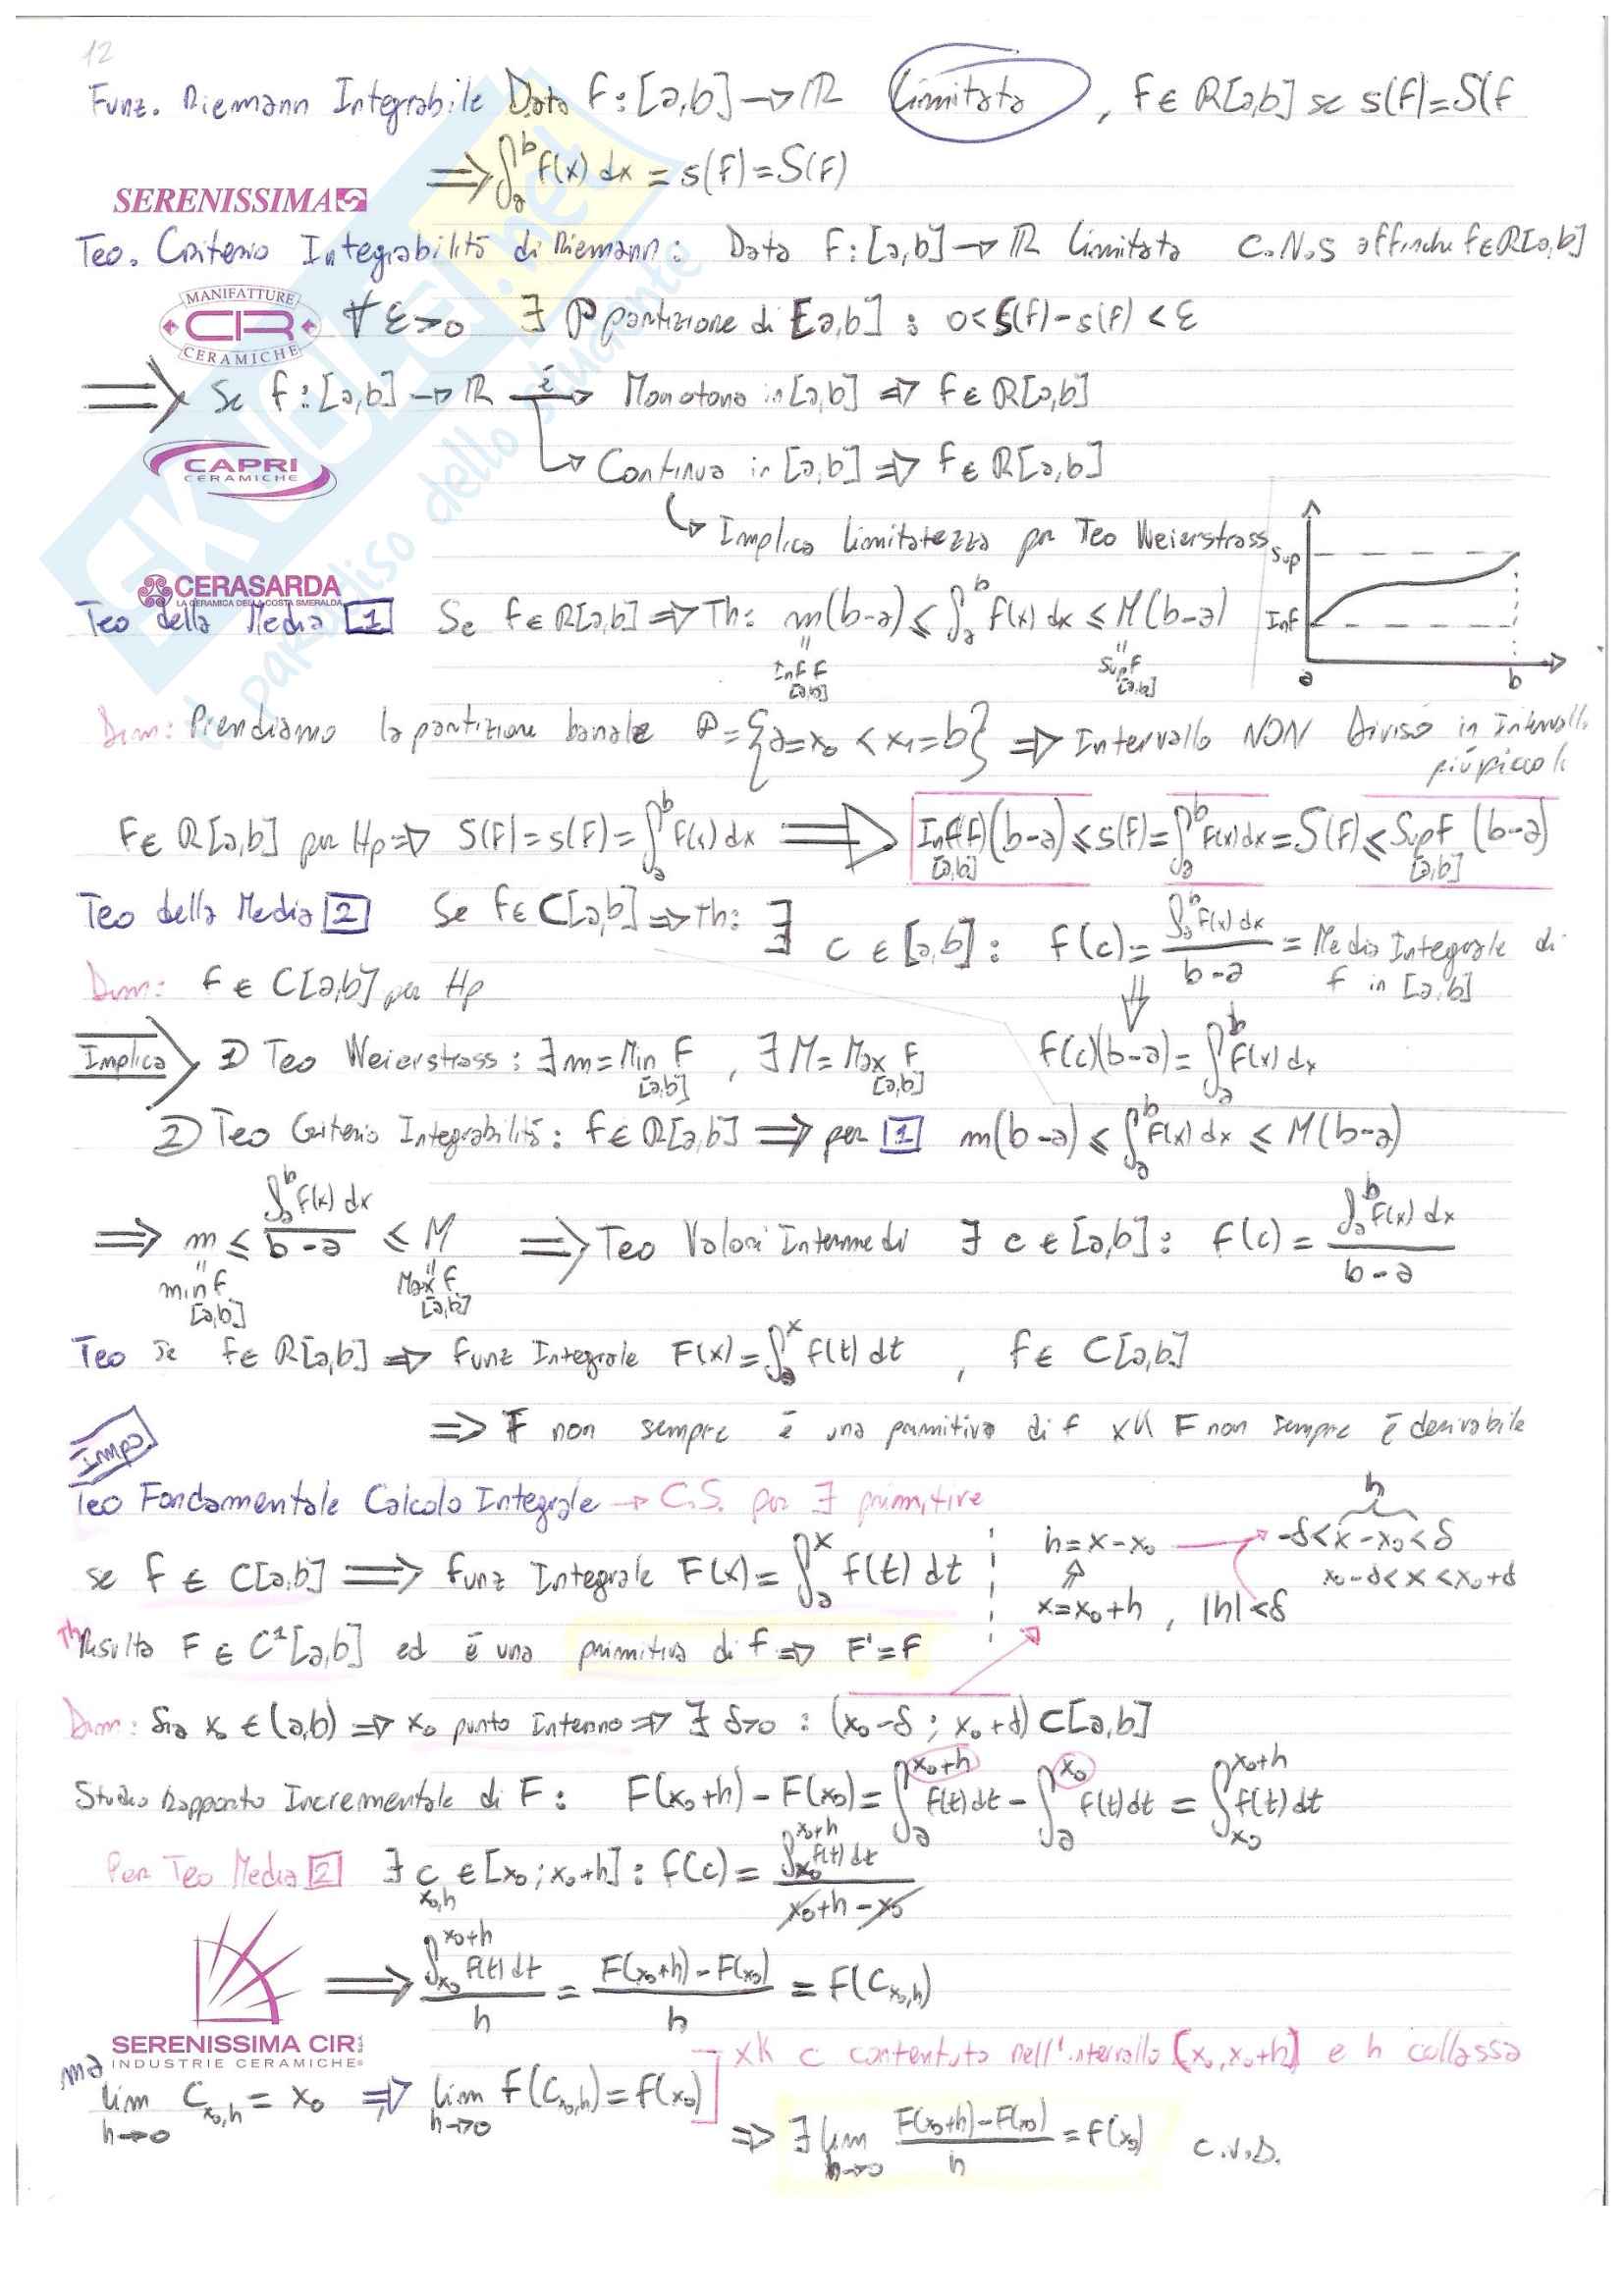 12
Funz. Riemann Integrabile Data f:[a,b]→ℝ limitata, f∈R[a,b] se s(f)=S(f
⇒ ∫_a^b f(x) dx = s(f)=S(f)
SERENISSIMA
Teo. Criterio Integrabilità di Riemann: Data f:[a,b]→ℝ limitata C.N.S affinche f∈R[a,b]
MANIFATTURE
CIR
CERAMICHE
∀ε>0 ∃ P partizione di [a,b] : 0<S(f)-s(f)<ε
⇒ Se f:[a,b]→ℝ è → Monotona in [a,b] ⇒ f∈R[a,b]
CAPRI
CERAMICHE
↳ Continua in [a,b] ⇒ f∈R[a,b]
↳ Implica limitatezza per Teo Weierstrass
Sup
Inf
a b
CERASARDA
LA CERAMICA DELLA COSTA SMERALDA
Teo della Media [1] Se f∈R[a,b] ⇒ Th: m(b-a) ≤ ∫_a^b f(x) dx ≤ M(b-a)
= Inf f [a,b] = Sup f [a,b]
Dim: Prendiamo la partizione banale P={a=x₀<x₁=b} ⇒ Intervallo NON Diviso in intervalli
più piccoli
f∈R[a,b] per Hp ⇒ S(f)=s(f)=∫_a^b f(x) dx ⇒ Inf(f) [a,b] (b-a) ≤ s(f)=∫_a^b f(x)dx=S(f) ≤ Sup f [a,b] (b-a)
Teo della Media [2] Se f∈C[a,b] ⇒ Th: ∃ c∈[a,b]: f(c)= ∫_a^b f(x) dx / b-a = Media Integrale di
f in [a,b]
Dim: f∈C[a,b] per Hp
⇓
Implica 1) Teo Weierstrass: ∃m=Min f [a,b], ∃M=Max f [a,b] f(c)(b-a)=∫_a^b f(x) dx
2) Teo Criterio Integrabilità: f∈R[a,b] ⇒ per [1] m(b-a) ≤ ∫_a^b f(x) dx ≤ M(b-a)
⇒ m ≤ ∫_a^b f(x) dx / b-a ≤ M ⇒ Teo Valori Intermedi ∃ c∈[a,b]: f(c)= ∫_a^b f(x) dx / b-a
= min f [a,b] = Max f [a,b]
Teo se f∈R[a,b] ⇒ funz Integrale F(x)=∫_a^x f(t) dt , f∈C[a,b]
⇒ F non sempre è una primitiva di f xK F non sempre è derivabile
Impo
Teo Fondamentale Calcolo Integrale → C.S. per ∃ primitive
se f∈C[a,b] ⇒ funz Integrale F(x)=∫_a^x f(t) dt
h
h=x-x₀ → -δ<x-x₀<δ
x₀-δ<x<x₀+δ
x=x₀+h , |h|<δ
Th Risulta F∈C¹[a,b] ed è una primitiva di f ⇒ F'=f
Dim: Sia x₀∈(a,b) ⇒ x₀ punto Interno ⇒ ∃ δ>0 : (x₀-δ ; x₀+δ)⊂[a,b]
Studio Rapporto Incrementale di F: F(x₀+h)-F(x₀)=∫_a^{x₀+h} f(t)dt-∫_a^{x₀} f(t)dt=∫_{x₀}^{x₀+h} f(t)dt
Per Teo Media [2] ∃ c_{x₀,h}∈[x₀;x₀+h]: f(c)= ∫_{x₀}^{x₀+h} f(t) dt / x₀+h-x₀
⇒ ∫_{x₀}^{x₀+h} f(t) dt / h = F(x₀+h)-F(x₀) / h = f(C_{x₀,h})
SERENISSIMA CIR
INDUSTRIE CERAMICHE
xK c contentuto nell'intervallo [x₀,x₀+h] e h collassa
ma lim_{h→0} C_{x₀,h}=x₀ ⇒ lim_{h→0} f(C_{x₀,h})=f(x₀)
⇒ ∃ lim_{h→0} F(x₀+h)-F(x₀) / h = f(x₀) c.v.d.
SKUOLA.net
il paradiso dello studente